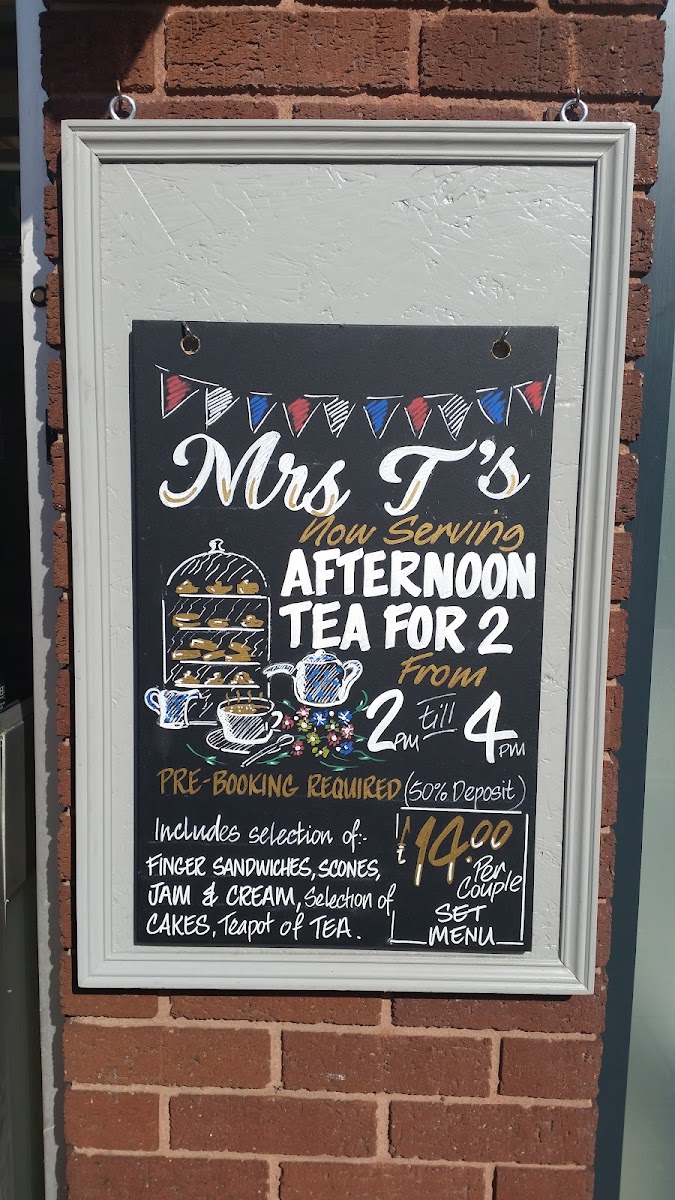 Mrs T's
Now Serving
AFTERNOON
TEA FOR 2
From
2PM till 4PM
PRE-BOOKING REQUIRED (50% Deposit)
Includes selection of:-
FINGER SANDWICHES, SCONES,
JAM & CREAM, Selection of
CAKES, Teapot of TEA.
£14.00
Per
Couple
SET
MENU